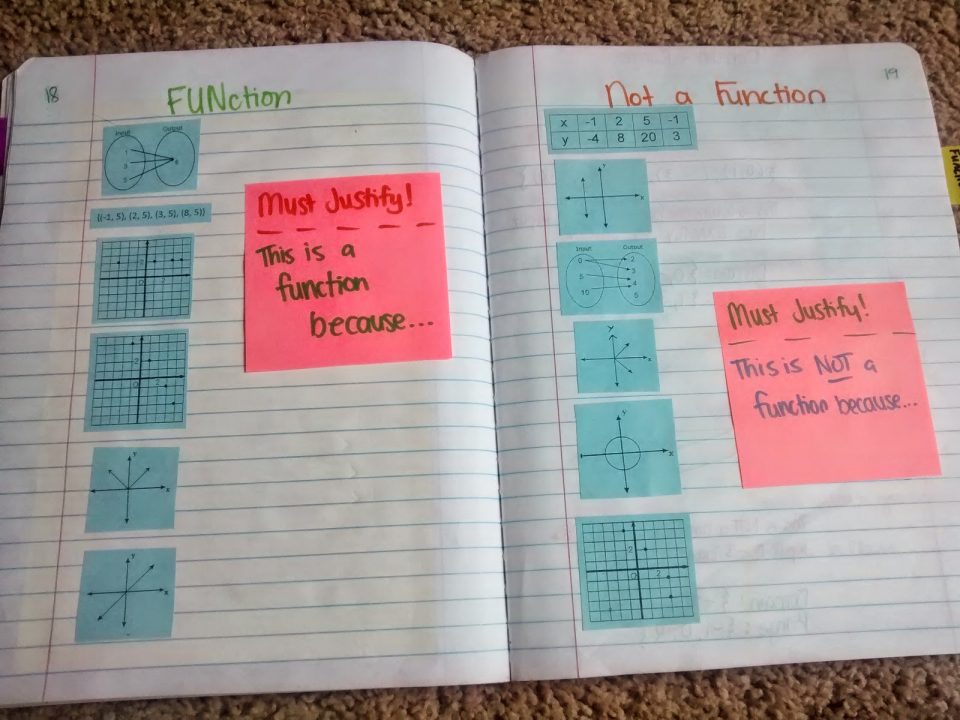 18
FUNction
Input
Output
1
3
5
6
{(-1, 5), (2, 5), (3, 5), (8, 5)}
2
O
2
2
O
2
y
x
y
x
Must Justify!
This is a
function
because...
19
Not a Function
x -1 2 5 -1
y -4 8 20 3
y
x
Input
Output
0
5
10
2
3
4
5
y
x
y
x
2
O
2
Must Justify!
This is NOT a
function because...